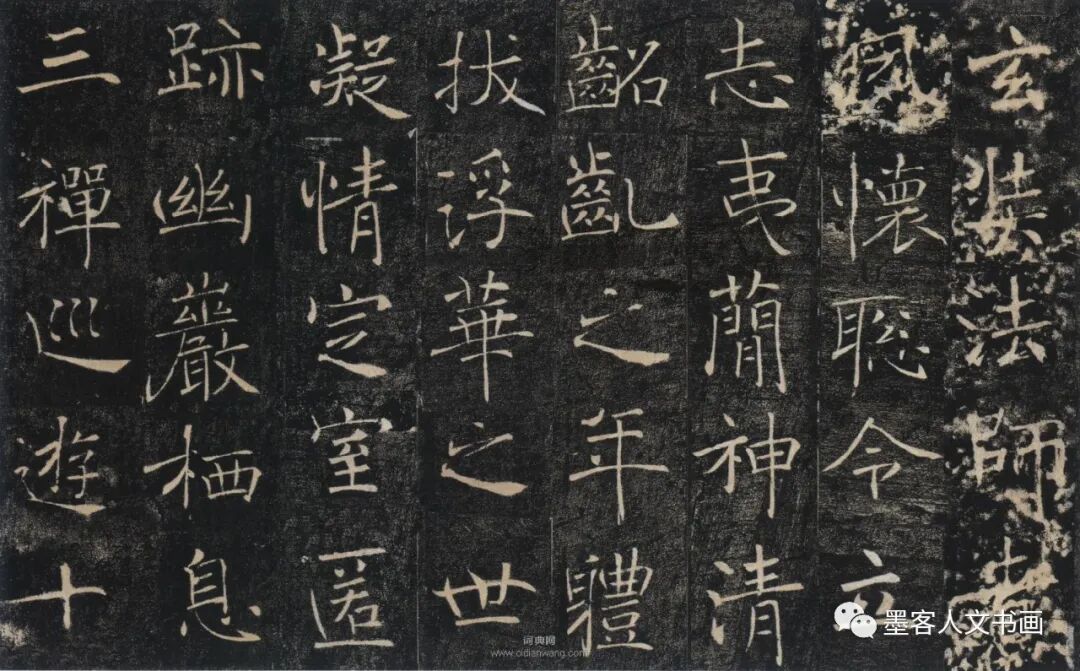 玄奘法師者
夙懷聦令立
志夷蕳神清
齠齓之年軆
拔浮華之世
凝情定室匿
跡幽巖栖息
三禪巡遊十
词典网
www.cidianwang.com
墨客人文书画